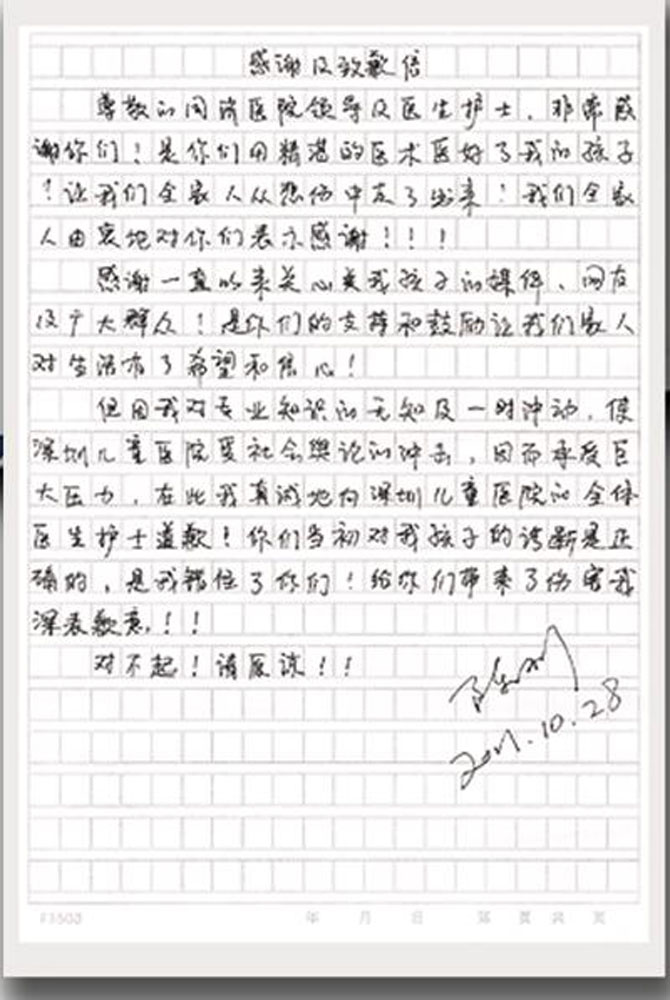 感谢及致歉信
尊敬的同济医院领导及医生护士、非常感
谢你们！是你们用精湛的医术医好了我的孩子
！让我们全家人从悲伤中走了出来！我们全家
人由衷地对你们表示感谢！！！
感谢一直以来关心关我孩子的媒体、网友
及广大群众！是你们的支持和鼓励让我们家人
对生活有了希望和信心！
但因我对专业知识的无知及一时冲动，使
深圳儿童医院受社会舆论的冲击，因而承受巨
大压力，在此我真诚地向深圳儿童医院的全体
医生护士道歉！你们当初对我孩子的诊断是正
确的，是我错怪了你们！给你们带来了伤害我
深表歉意！！！
对不起！请原谅！！
2011.10.28
F1503
年 月 日 第 页 共 页